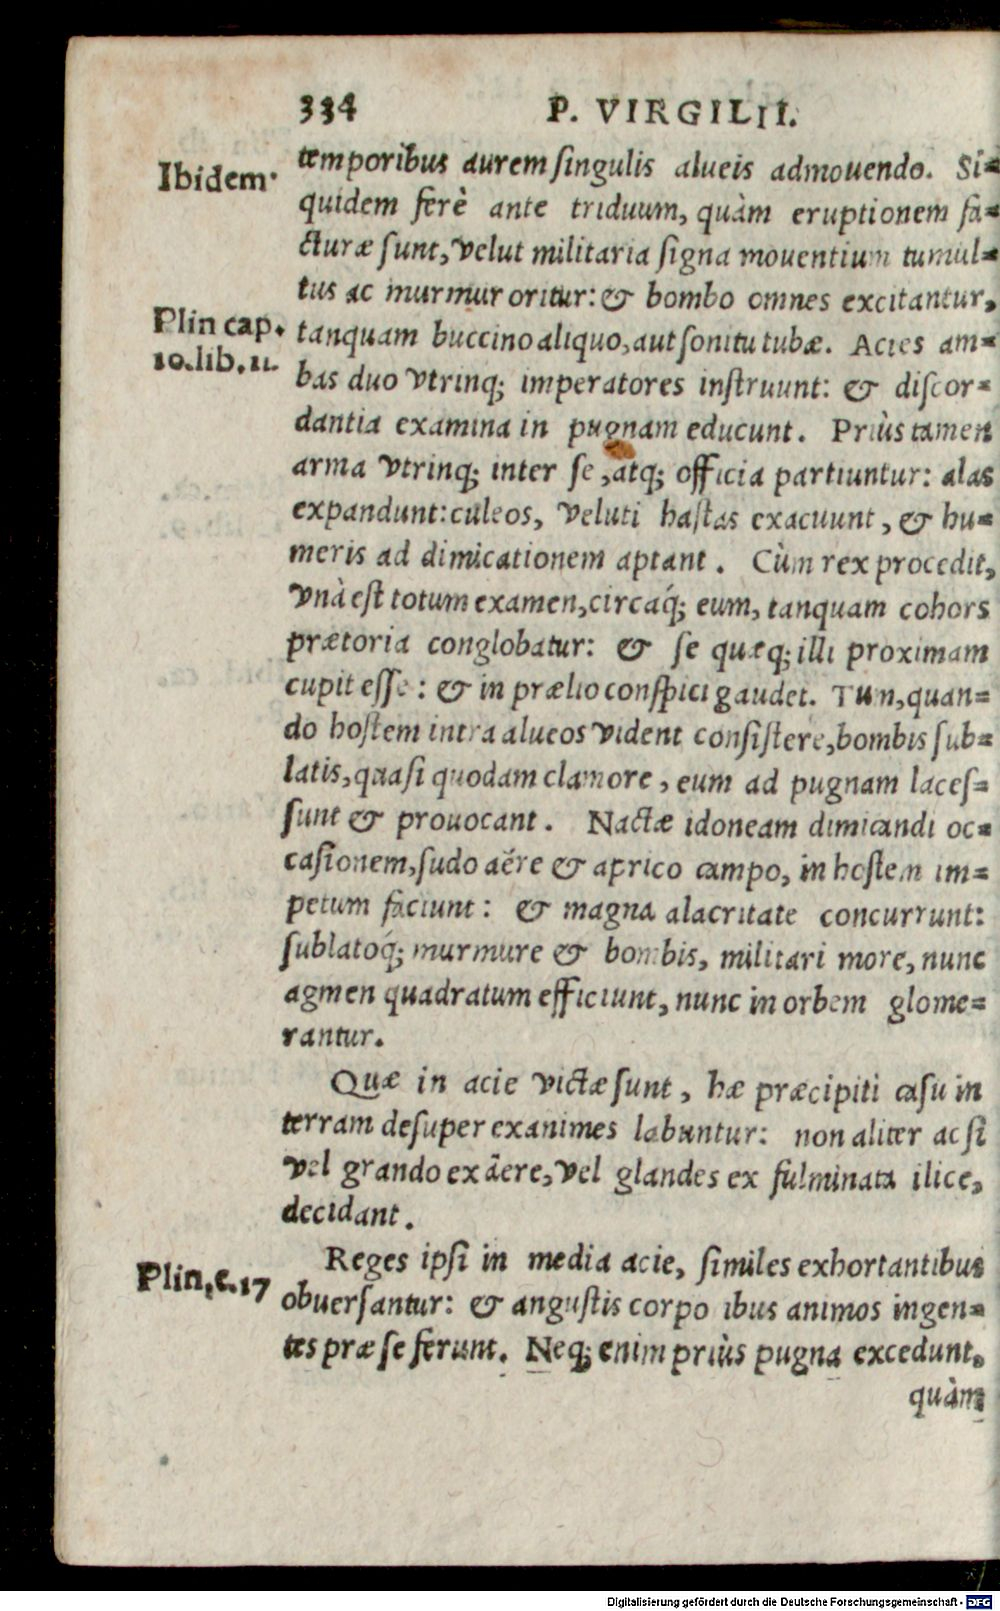 334 P. VIRGILII.
Ibidem·
temporibus aurem ſingulis alueis admouendo. Si-
quidem ferè ante triduum, quàm eruptionem fa-
cturæ ſunt, velut militaria ſigna mouentium tumul-
tus ac murmur oritur: & bombo omnes excitantur,
Plin cap.
10.lib.11.
tanquam buccino aliquo, aut ſonitu tubæ. Acies am-
bas duo vtrinq; imperatores inſtruunt: & diſcor-
dantia examina in pugnam educunt. Priùs tamen
arma vtrinq; inter ſe, atq; officia partiuntur: alas
expandunt: culeos, veluti haſtas exacuunt, & hu-
meris ad dimicationem aptant. Cùm rex procedit,
vnà eſt totum examen, circaq́; eum, tanquam cohors
prætoria conglobatur: & ſe quæq; illi proximam
cupit eſſe: & in prælio conſpici gaudet. Tun, quan-
do hoſtem intra alueos vident conſiſtere, bombis ſub-
latis, quaſi quodam clamore, eum ad pugnam laceſ-
ſunt & prouocant. Nactæ idoneam dimicandi oc-
caſionem, ſudo aëre & aprico campo, in hoſtem im-
petum faciunt: & magna alacritate concurrunt:
ſublatoq́; murmure & bombis, militari more, nunc
agmen quadratum efficiunt, nunc in orbem glome-
rantur.
Quæ in acie victæ ſunt, hæ præcipiti caſu in
terram deſuper exanimes labuntur: non aliter ac ſi
vel grando ex äere, vel glandes ex fulminata ilice,
decidant.
Plin.c.17
Reges ipſi in media acie, ſimiles exhortantibus
obuerſantur: & anguſtis corpo ibus animos ingen-
tes præ ſe ferunt. Neq; enim priùs pugna excedunt,
quàm
Digitalisierung gefördert durch die Deutsche Forschungsgemeinschaft - DFG